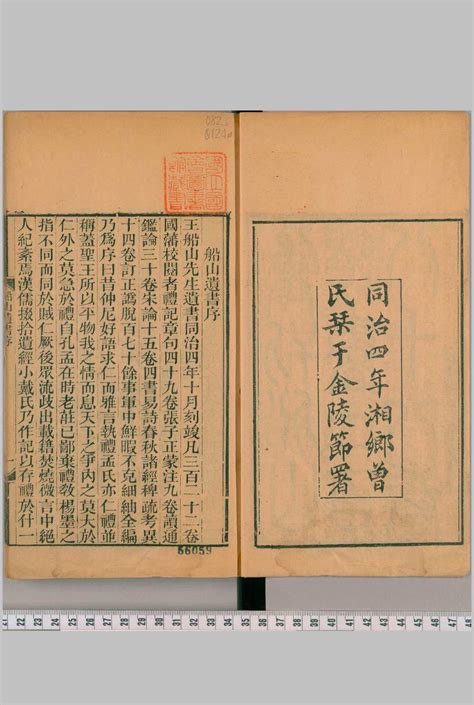 同治四年湘鄉曾
氏栞于金陵節署
船山遺書序
王船山先生遺書同治四年十月刻竣凡三百二十二卷
國藩校閱者禮記章句四十九卷張子正蒙注九卷讀通
鑑論三十卷宋論十五卷四書易詩春秋諸經稗疏考異
十四卷訂正譌脫百七十餘事軍中鮮暇不克細紬全編
乃爲序曰昔仲尼好語求仁而雅言執禮孟氏亦仁禮並
稱蓋聖王所以平物我之情而息天下之爭內之莫大於
仁外之莫急於禮自孔孟在時老莊已鄙棄禮教楊墨之
指不同而同於賊仁厥後眾流歧出載籍焚燒微言中絕
人紀紊焉漢儒掇拾遺經小戴氏乃作記以存禮於什一
船山遺書序
56059
21 22 23 24 25 26 27 28 29 30 31 32 33 34 35 36 37 38 39 40 41 42 43 44 45 46 47 48